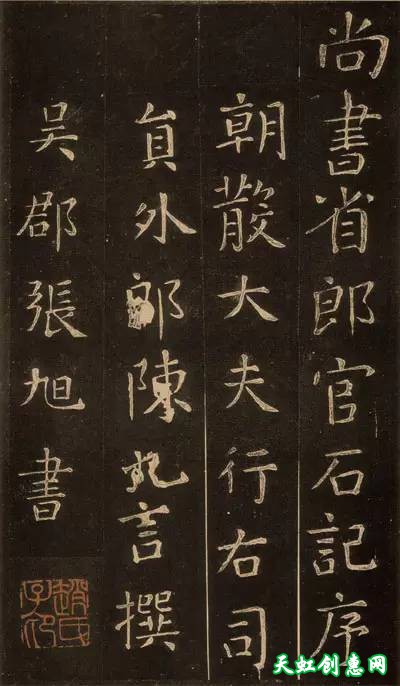 尚書省郎官石記序
朝散大夫行右司
員外郎陳九言撰
吳郡張旭書
趙氏子昂
天虹创惠网